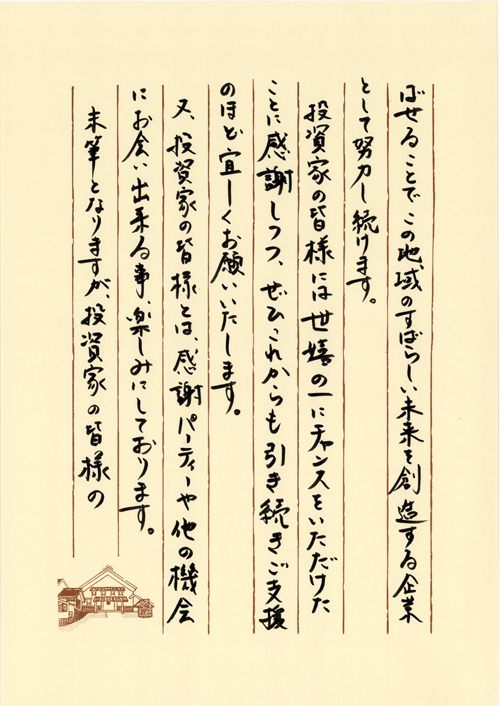 ばせることでこの地域のすばらしい未来を創造する企業
として努力し続けます。
投資家の皆様には世嬉の一にチャンスをいただけた
ことに感謝しつつ、ぜひこれからも引き続きご支援
のほど宜しくお願いいたします。
又、投資家の皆様とは、感謝パーティーや他の機会
にお会い出来る事、楽しみにしております。
末筆となりますが、投資家の皆様の